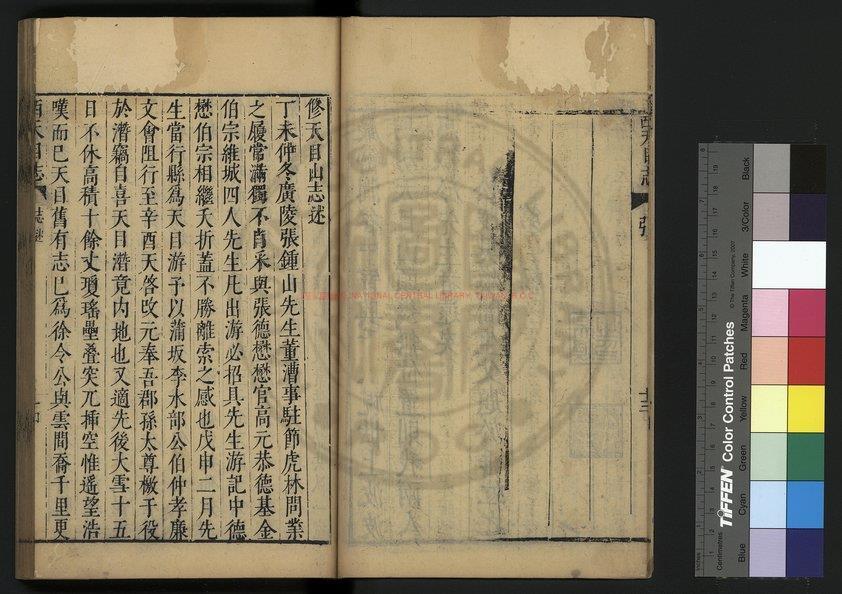 西天目志
張
修天目山志述
丁未仲冬廣陵張鍾山先生董漕事駐節虎林問業
之屨常滿獨不肖采與張德懋懋官高元恭德基金
伯宗維城四人先生凡出游必招具先生游記中德
懋伯宗相繼夭折蓋不勝離索之感也戊申二月先
生當行縣爲天目游予以蒲坂李水部公伯仲孝廉
文會阻行至辛酉天啓改元奉吾郡孫太尊檄于役
於濳竊自喜天目濳竟內地也又適先後大雪十五
日不休高積十餘丈瓊瑤壘叠突兀揷空惟遥望浩
嘆而已天目舊有志已爲徐令公與雲間喬千里更
西天目志
志述
NATIONAL CENTRAL LIBRARY, TAIWAN, R.O.C.
TIFFEN Color Control Patches
© The Tiffen Company, 2007
Centimetres
Inches
Blue
Cyan
Green
Yellow
Red
Magenta
White
3/Color
Black